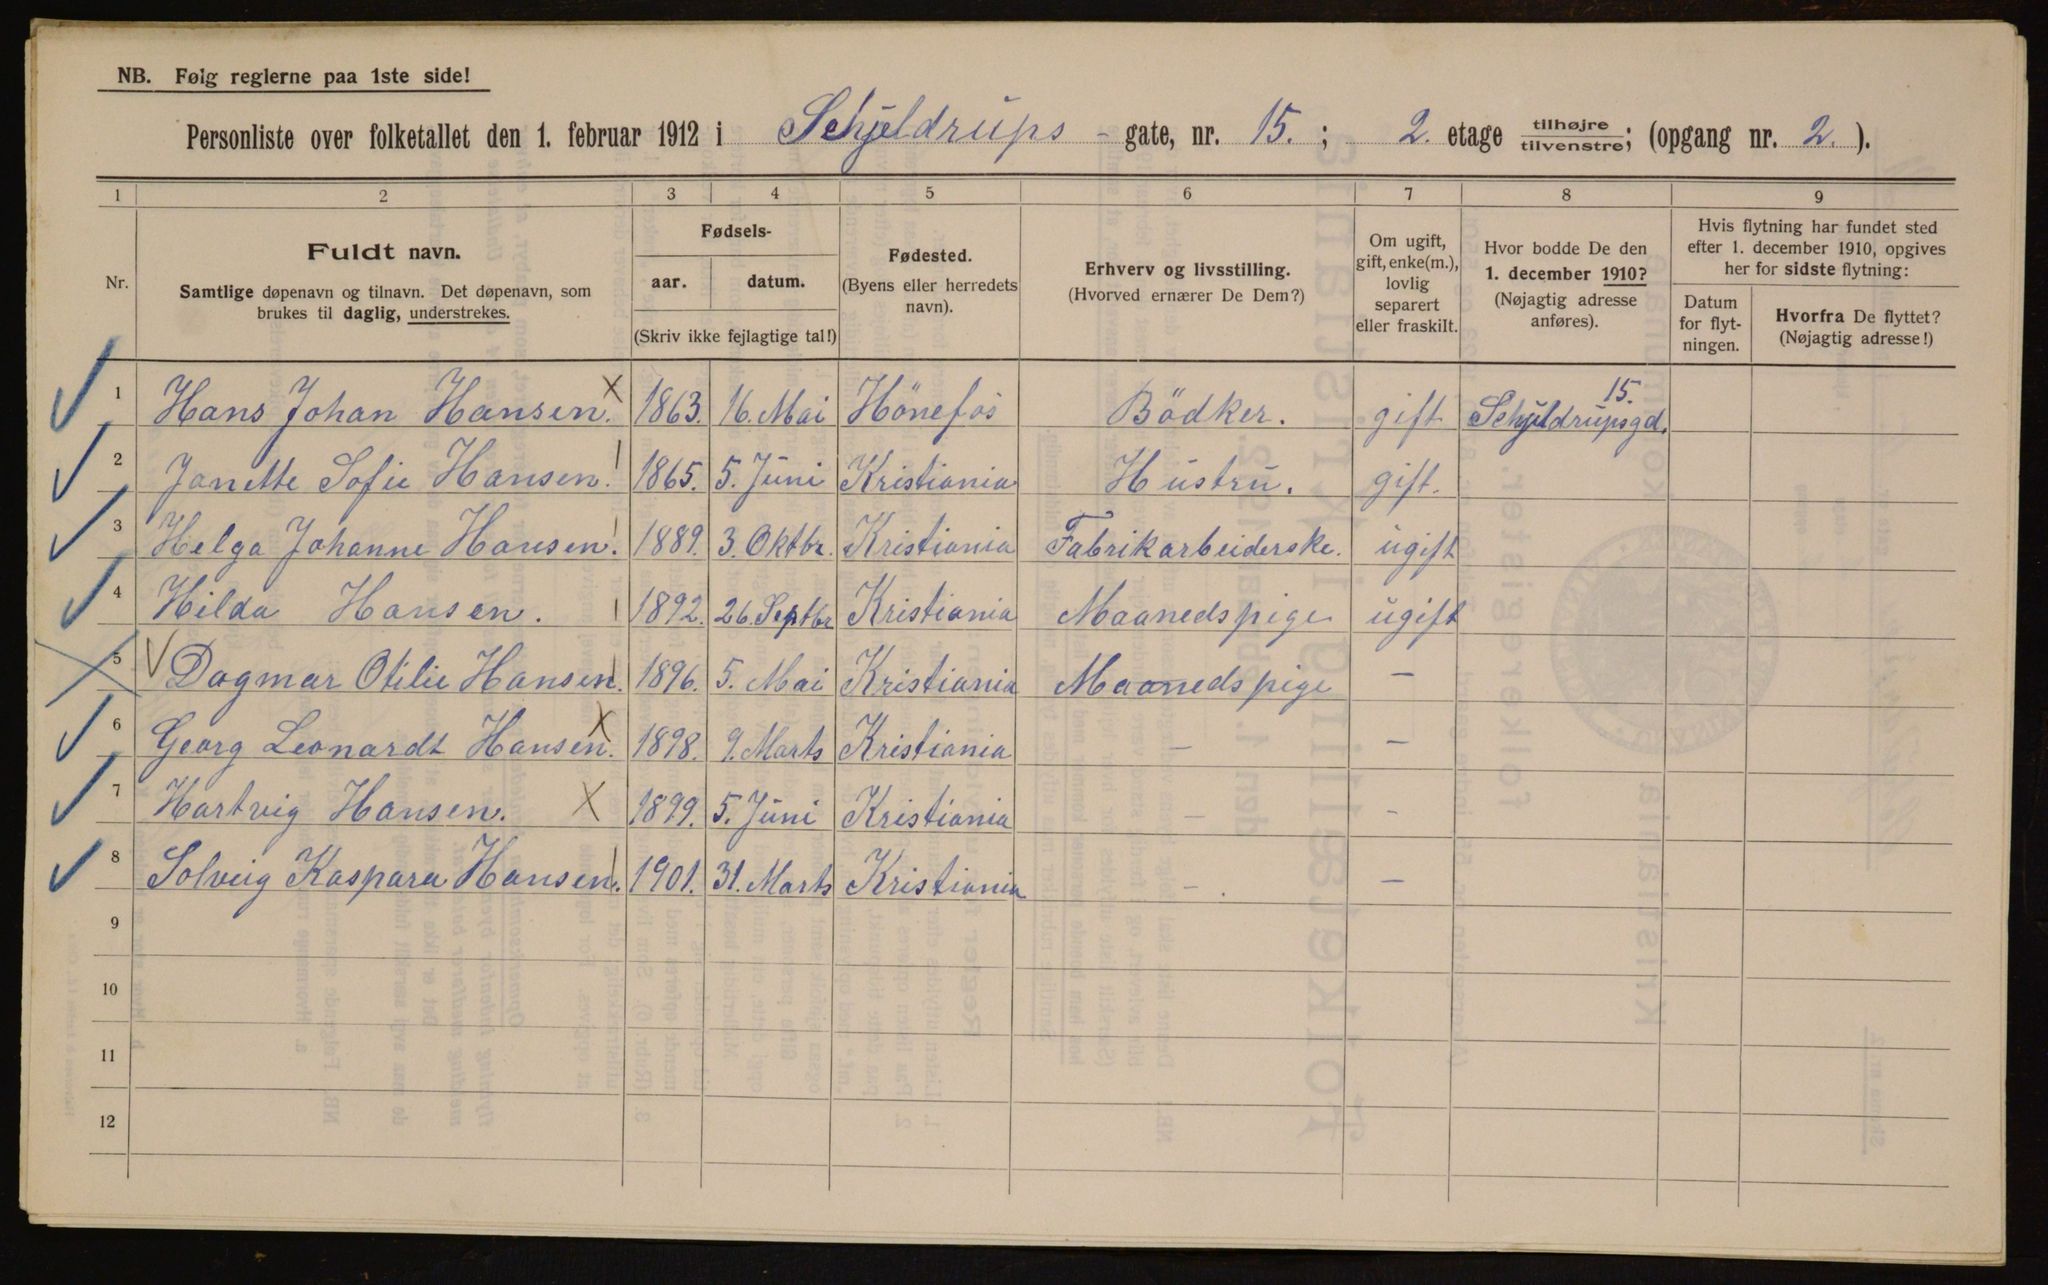 NB. Følg reglerne paa 1ste side!
Personliste over folketallet den 1. februar 1912 i Schjeldrups - gate, nr. 15. ; 2. etage tilhøjre tilvenstre; (opgang nr. 2. ).
1 2 3 4 5 6 7 8 9
Nr.
Fuldt navn.
Samtlige døpenavn og tilnavn. Det døpenavn, som
brukes til daglig, understrekes.
Fødsels-
aar. datum.
(Skriv ikke fejlagtige tal!)
Fødested.
(Byens eller herredets
navn).
Erhverv og livsstilling.
(Hvorved ernærer De Dem?)
Om ugift,
gift, enke(m.),
lovlig
separert
eller fraskilt.
Hvor bodde De den
1. december 1910?
(Nøjagtig adresse
anføres).
Hvis flytning har fundet sted
efter 1. december 1910, opgives
her for sidste flytning:
Datum
for flyt-
ningen.
Hvorfra De flyttet?
(Nøjagtig adresse!)
1 Hans Johan Hansen. X 1863. 16. Mai Hönefos Bödker. gift 15. Schjeldrupsgd.
2 Janette Sofie Hansen. 1865. 5. Juni Kristiania Hustru. gift.
3 Helga Johanne Hansen. 1889. 3. Oktbr. Kristiania Fabrikarbeiderske. ugift
4 Hilda Hansen. 1892. 26. Septbr Kristiania Maanedspige ugift
5 Dagmar Otilie Hansen. 1896. 5. Mai Kristiania Maanedspige -
6 Georg Leonardt Hansen. X 1898. 9. Marts Kristiania - -
7 Hartvig Hansen. X 1899. 5. Juni Kristiania - -
8 Solveig Kaspara Hansen. 1901. 31. Marts Kristiania - -
9
10
11
12